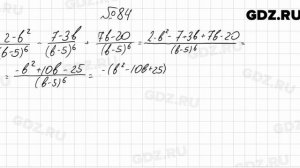 GDZ.RU
№84
(2-b²)/(b-5)⁶ - (7-3b)/(b-5)⁶ + (7b-20)/(b-5)⁶ = (2-b²-7+3b+7b-20)/(b-5)⁶ =
= (-b²+10b-25)/(b-5)⁶ = -(b²-10b+25)